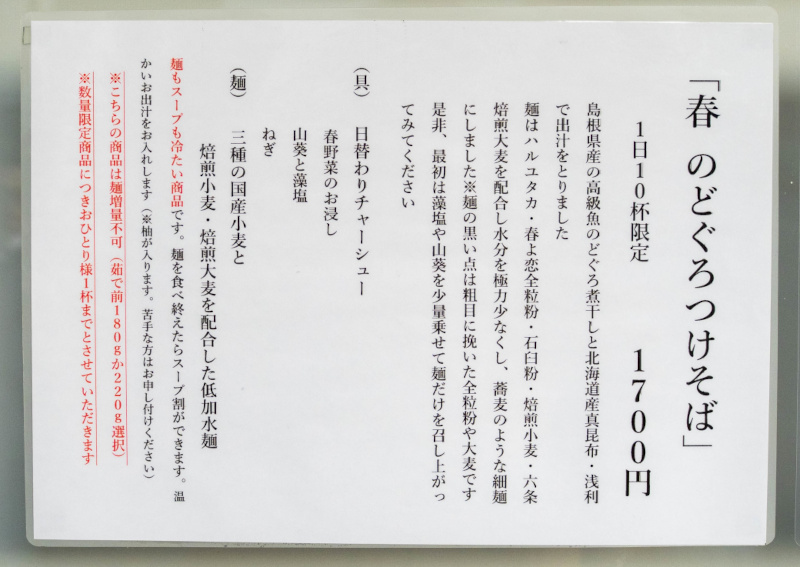 「春 のどぐろつけそば」
1日10杯限定 1700円
島根県産の高級魚のどぐろ煮干しと北海道産真昆布・浅利
で出汁をとりました
麺はハルユタカ・春よ恋全粒粉・石臼粉・焙煎小麦・六条
焙煎大麦を配合し水分を極力少なくし、蕎麦のような細麺
にしました※麺の黒い点は粗目に挽いた全粒粉や大麦です
是非、最初は藻塩や山葵を少量乗せて麺だけを召し上がっ
てみてください
（具）日替わりチャーシュー
春野菜のお浸し
山葵と藻塩
ねぎ
（麺）三種の国産小麦と
焙煎小麦・焙煎大麦を配合した低加水麺
麺もスープも冷たい商品です。麺を食べ終えたらスープ割ができます。温
かいお出汁をお入れします（※柚が入ります。苦手な方はお申し付けください）
※こちらの商品は麺増量不可（茹で前180gか220g選択）
※数量限定商品につきおひとり様1杯までとさせていただきます